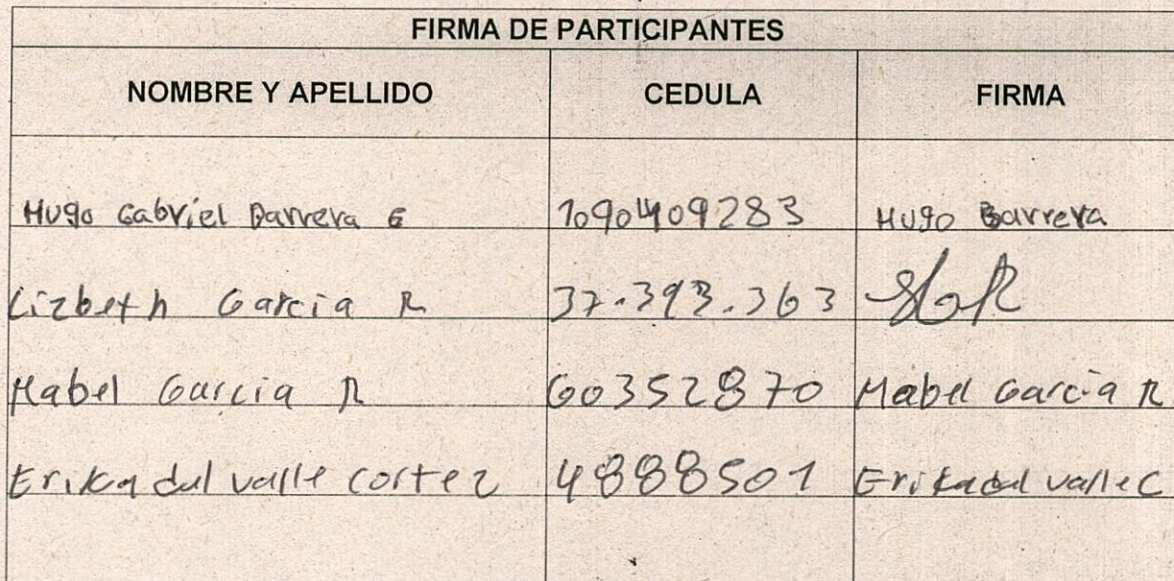 FIRMA DE PARTICIPANTES
NOMBRE Y APELLIDO CEDULA FIRMA
Hugo Gabriel Barrera G 1090409283 Hugo Barrera
Lizbeth Garcia R 37.393.363
Mabel Garcia R 60352870 Mabel Garcia R
Erika del valle cortez 4888501 Erika del valle C